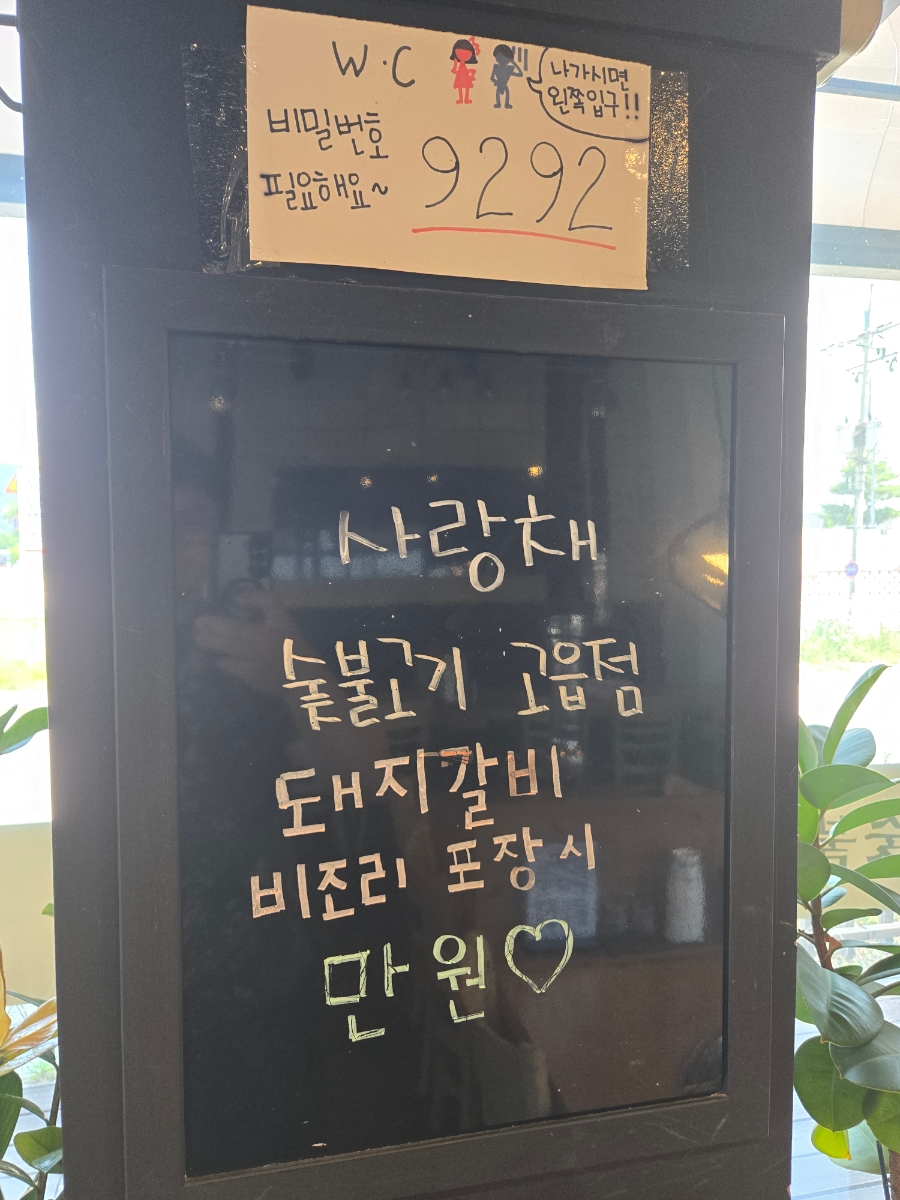 W·C
나가시면
왼쪽입구!!
비밀번호
필요해요~
9292
사랑채
숯불고기 고읍점
돼지갈비
비조리 포장시
만원♡